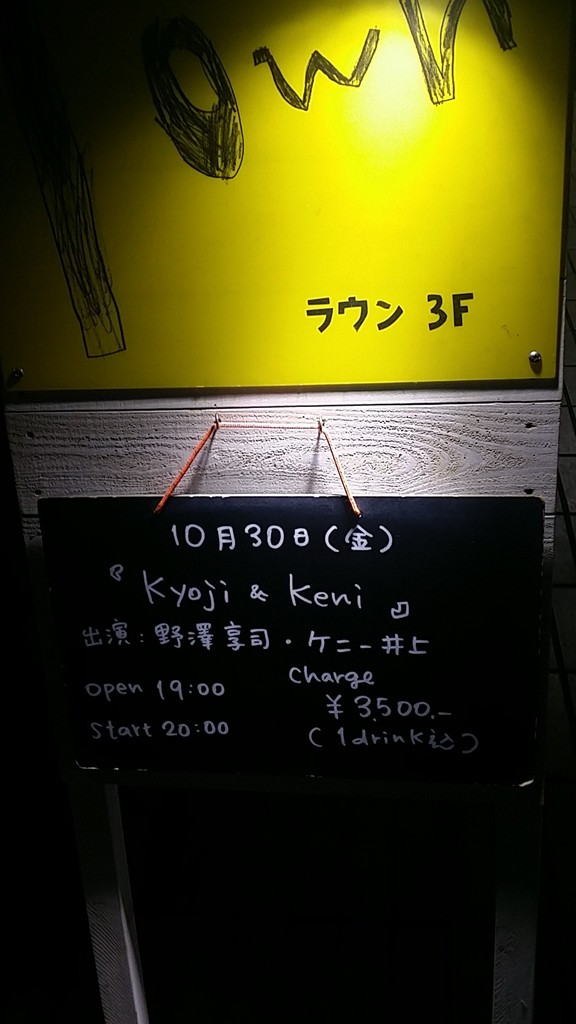 rown
ラウン 3F
10月30日(金)
『Kyoji & Keni』
出演:野澤享司・ケニー井上
open 19:00
Charge
¥3,500.-
Start 20:00
(1drink込)